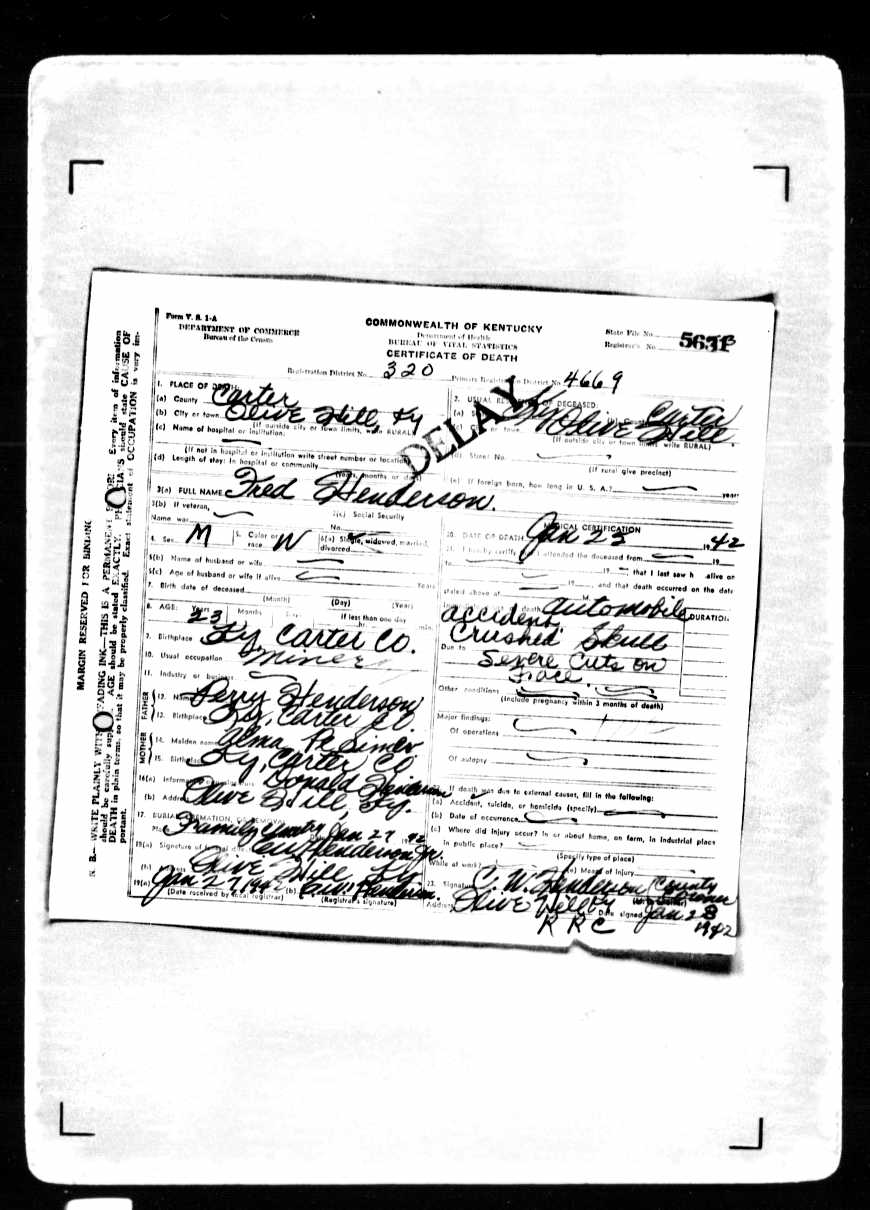 Form V. S. 1-A
DEPARTMENT OF COMMERCE
Bureau of the Census
COMMONWEALTH OF KENTUCKY
Department of Health
BUREAU OF VITAL STATISTICS
CERTIFICATE OF DEATH
State File No.
Registrar's No. 5631
Registration District No. 320
Primary Registration District No. 4669
DELAY
MARGIN RESERVED FOR BINDING
N. B.—WRITE PLAINLY WITH UNFADING INK—THIS IS A PERMANENT RECORD. Every item of information
should be carefully supplied. AGE should be stated EXACTLY. PHYSICIANS should state CAUSE OF
DEATH in plain terms, so that it may be properly classified. Exact statement of OCCUPATION is very im-
portant.
1. PLACE OF DEATH:
(a) County Carter
(b) City or town Olive Hill, Ky
(If outside city or town limits, write RURAL)
(c) Name of hospital or institution:
(If not in hospital or institution write street number or location)
(d) Length of stay: In hospital or community
(Years, months or days)
2. USUAL RESIDENCE OF DECEASED:
(a) State Ky County Carter
(c) City or town Olive Hill
(If outside city or town limits write RURAL)
(d) Street No.
(If rural give precinct)
(e) If foreign born, how long in U. S. A.? years
3(a) FULL NAME Fred Henderson.
3(b) If veteran,
Name war
3(c) Social Security
No.
4. Sex M
5. Color or race W
6(a) Single, widowed, married, divorced
6(b) Name of husband or wife
6(c) Age of husband or wife if alive Years
7. Birth date of deceased
(Month) (Day) (Year)
8. AGE: Years 23 Months Days If less than one day
hr. min.
9. Birthplace Ky, Carter Co.
10. Usual occupation Miner
11. Industry or business
FATHER
12. Name Perry Henderson
13. Birthplace Ky, Carter Co
MOTHER
14. Maiden name Alma
15. Birthplace Ky, Carter Co
16(a) Informant's own signature Donald Henderson
(b) Address Olive Hill, Ky.
17. BURIAL, CREMATION, OR REMOVAL
Place Family Jan 27 1942
18(a) Signature of funeral director Henderson Jr.
(b) Address Olive Hill Ky
19(a) Jan 27, 1942 (b) C.W. Henderson.
(Date received by local registrar) (Registrar's signature)
MEDICAL CERTIFICATION
20. DATE OF DEATH Jan 23 1942
21. I hereby certify I attended the deceased from 19
to 19 that I last saw h alive on
19 , and that death occurred on the date
stated above at M.
Immediate cause of death automobile
accident,
Crushed Skull
DURATION
Due to Severe Cuts on
Face.
Other conditions
(Include pregnancy within 3 months of death)
Major findings:
Of operations
Of autopsy
22. If death was due to external causes, fill in the following:
(a) Accident, suicide, or homicide (specify)
(b) Date of occurrence
(c) Where did injury occur? In or about home, on farm, in industrial place
in public place?
(Specify type of place)
While at work? (e) Means of injury
23. Signature C. W. Henderson County Coroner
Address Olive Hill Ky Date signed Jan 28
1942
R R C